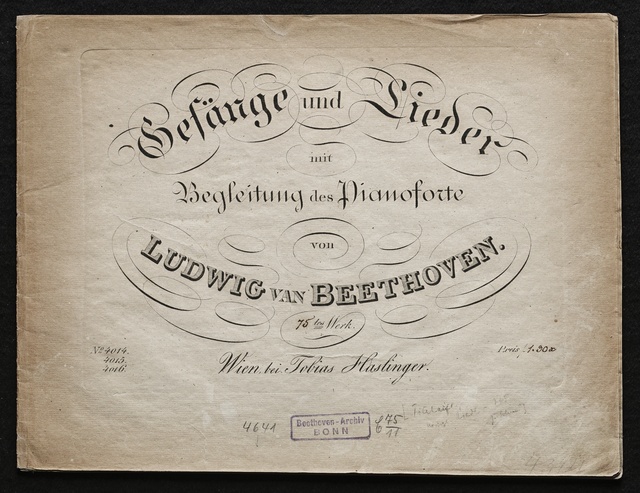 Gesänge und Lieder
mit
Begleitung des Pianoforte
von
LUDWIG VAN BEETHOVEN.
75 tes Werk.
No 4014.
4015.
4016.
Preis
Wien bei Tobias Haslinger.
4641
Beethoven-Archiv
BONN
75
11